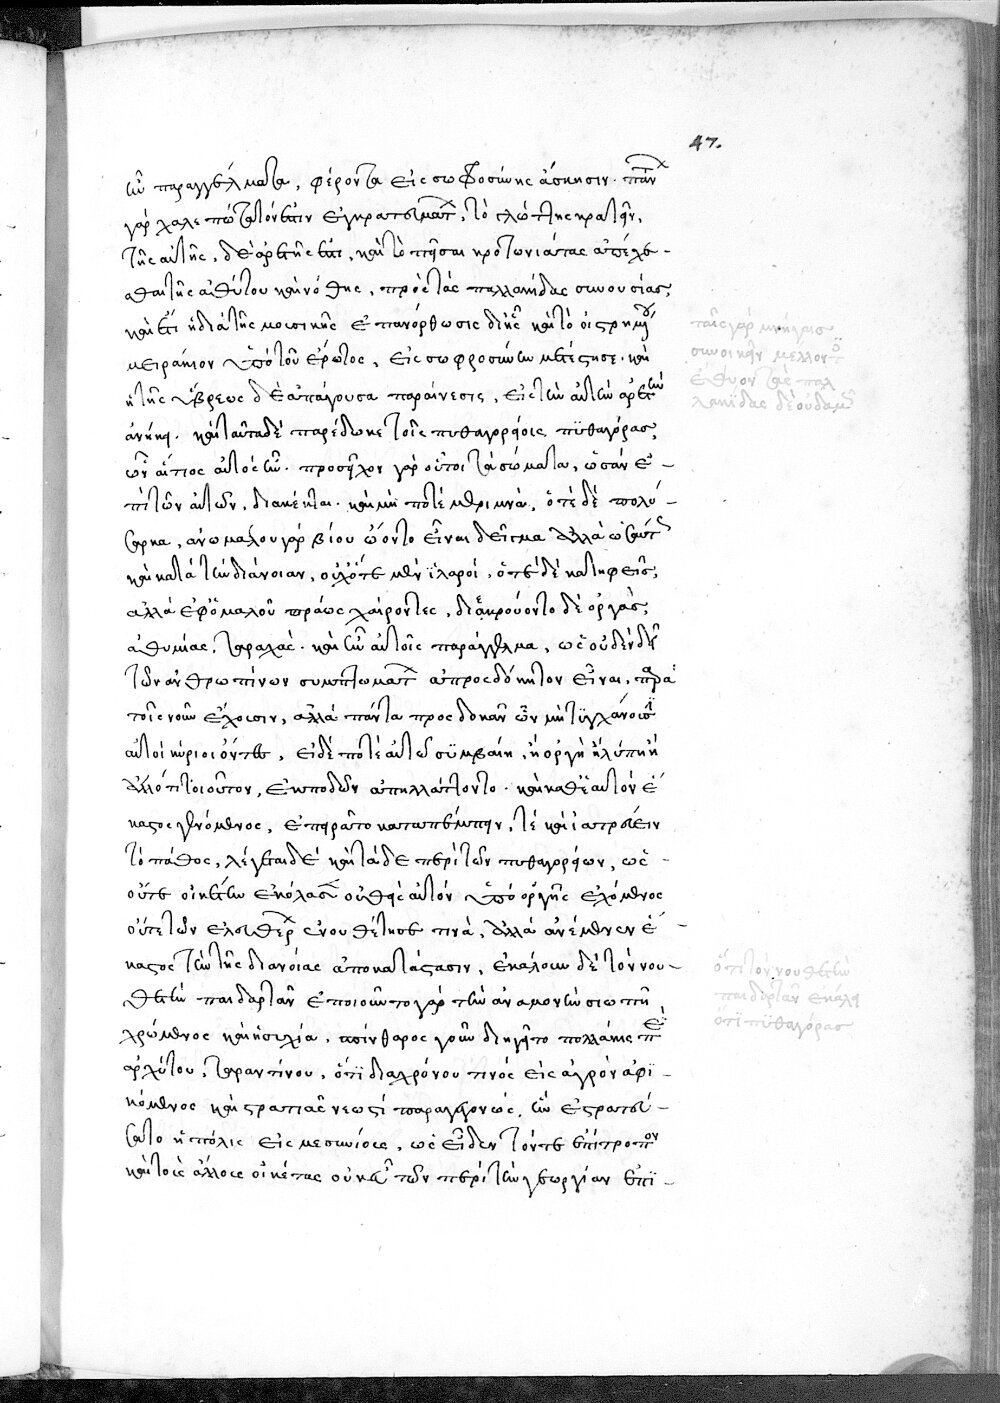 47.
ὧν παραγγέλματα, φέροντα εἰς σωφροσύνης ἄσκησιν. πάντων
γὰρ χαλεπώτατόν ἐστιν ἐγκρατευμάτων, τὸ γλώττης κρατεῖν,
τῆς αὐτῆς, δὲ ἀρετῆς ἐστι, καὶ τὸ πεῖσαι κροτωνιάτας ἀπέχε-
σθαι τῆς ἀθύτου καὶ νόθης, πρὸς τὰς παλλακίδας συνουσίας,
καὶ ἔτι ἡ διὰ τῆς μουσικῆς ἐπανόρθωσις δι' ἧς καὶ τὸ οἰστρημένον
μειράκιον ὑπὸ τοῦ ἔρωτος, εἰς σωφροσύνην μετέστησε. καὶ
ἡ τῆς ὕβρεως δὲ ἀπάγουσα παραίνεσις, εἰς τὴν αὐτὴν ἀρετὴν
ἀνήκει. καὶ ταῦτα δὲ παρέδωκε τοῖς πυθαγορείοις πυθαγόρας,
ὧν αἴτιος αὐτὸς ἦν. προσεῖχον γὰρ οὗτοι τὰ σώματα, ὡς ἂν ἐ-
πὶ τῶν αὐτῶν, διακέηται. καὶ μὴ ποτὲ μὲν ῥικνὰ, ὁτὲ δὲ πολύ-
σαρκα, ἀνωμάλου γὰρ βίου ᾤοντο εἶναι δεῖγμα ἀλλὰ ὡσαύτως
καὶ κατὰ τὴν διάνοιαν, οὐχ ὁτὲ μὲν ἱλαροί, ὁτὲ δὲ κατηφεῖς,
ἀλλὰ ἐφ' ὁμαλοῦ πράως χαίροντες, διεκρούοντο δὲ ὀργὰς,
ἀθυμίας, ταραχάς. καὶ ἦν αὐτοῖς παράγγελμα, ὡς οὐδὲν δεῖ
τῶν ἀνθρωπίνων συμπτωμάτων ἀπροσδόκητον εἶναι, παρὰ
τοῖς νοῦν ἔχουσιν, ἀλλὰ πάντα προσδοκᾶν ὧν μὴ τυγχάνουσιν
αὐτοὶ κύριοι ὄντες, εἰ δέ ποτε αὐτοῖς συμβαίη, ἢ ὀργὴ ἢ λύπη ἢ
ἄλλό τι τοιοῦτον, ἐκποδὼν ἀπηλλάττοντο. καὶ καθ' ἑαυτὸν ἕ-
καστος γενόμενος, ἐπειρᾶτο καταπέμπειν, τὲ καὶ ἰατρεύειν
τὸ πάθος, λέγεται δὲ καὶ τάδε περὶ τῶν πυθαγορείων, ὡς
οὔτε οἰκέτην ἐκόλασεν οὐθεὶς αὐτῶν ὑπὸ ὀργῆς ἐχόμενος
οὔτε τῶν ἐλευθέρων ἐνουθέτησέ τινα, ἀλλὰ ἀνέμενεν ἕ-
καστος τὴν τῆς διανοίας ἀποκατάστασιν, ἐκάλουν δὲ τὸ νου-
θετεῖν παιδαρτᾶν ἐποιοῦντο γὰρ τὴν ἀναμονὴν σιωπῇ
χρώμενος καὶ ἡσυχίᾳ, σπίνθαρος γοῦν διηγεῖτο πολλάκις περὶ
ἀρχύτου, ταραντίνου, ὅτι διὰ χρόνου τινὸς εἰς ἀγρὸν ἀφι-
κόμενος καὶ στρατιᾶς νεωστὶ παραγεγονώς, ἣν ἐστρατεύ-
σατο ἡ πόλις εἰς μεσσηνίους, ὡς εἶδεν τόν τε ἐπίτροπον
καὶ τοὺς ἄλλους οἰκέτας οὐκ εὖ τῶν περὶ τὴν γεωργίαν ἐπι-
ὅτι τὸ νουθετεῖν
παιδαρτᾶν ἐκάλει
ὅτι πυθαγόρας